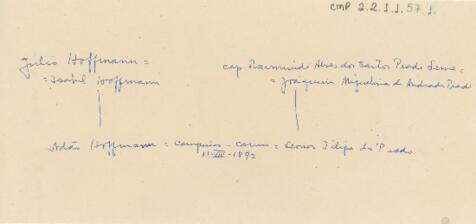 CMP 2.2.1.1.57.1.
Julio Hoffmann =
= Isabel Hoffmann
cap. Raimundo Alves dos Santos Prado Leme =
= Joaquina Miquelina de Andrade Prado
Adão Hoffmann = Campinas - casou = Leonor Filipa do Prado
11-VII-1892